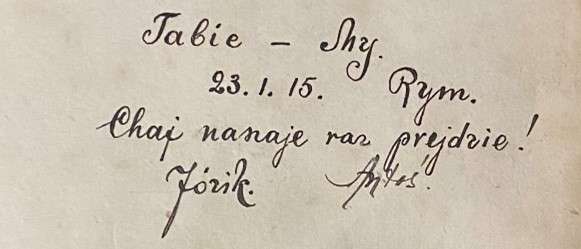 Tabie – My.
23.1.15. Rym.
Chaj nanaje raz prejdzie!
Józik. Antoś.